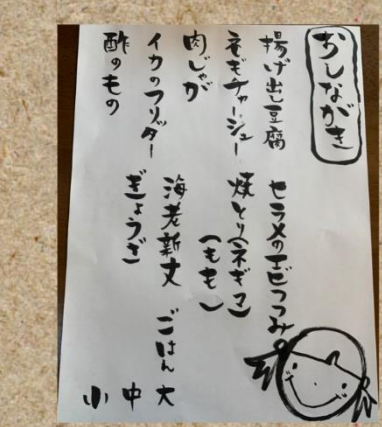 おしながき
揚げ出し豆腐
ネギチャーシュー
肉じゃが
イカのフリッター
酢のもの
セラメのエビつつみ
焼とり(ネギマ)
(もも)
海老新丈
ぎょうざ
ごはん
大
中
小